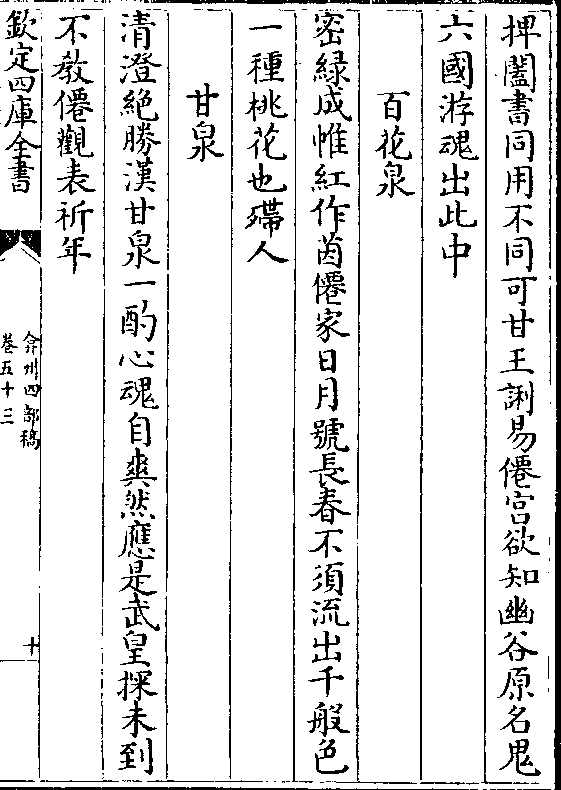 捭闔書同用不同可甘王誚易僊宫欲知幽谷原名鬼
六國游魂出此中
百花泉
密緑成帷紅作茵僊家日月號長春不須流出千般色
一種桃花也殢人
甘泉
清澄絶勝漢甘泉一酌心魂自爽然應是武皇探未到
不教僊觀表祈年
欽定四庫全書
弇州四部稿
卷五十三
十